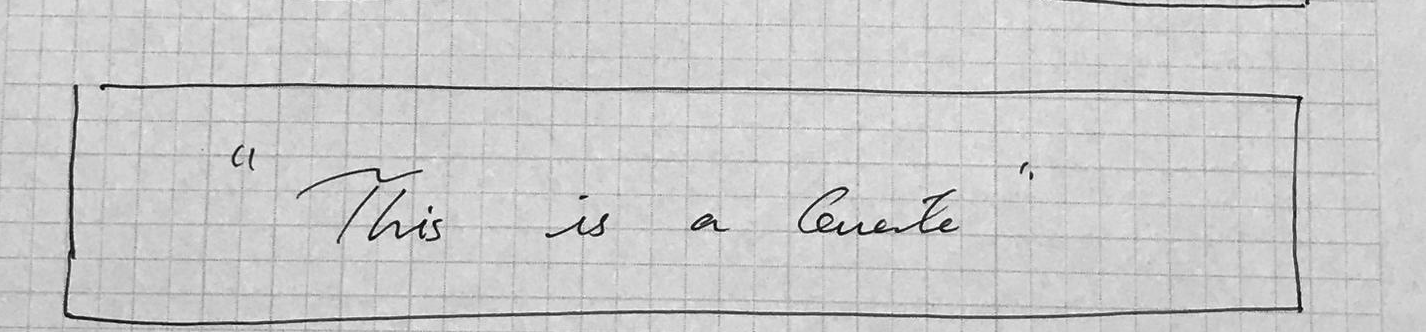 "This is a Quote"